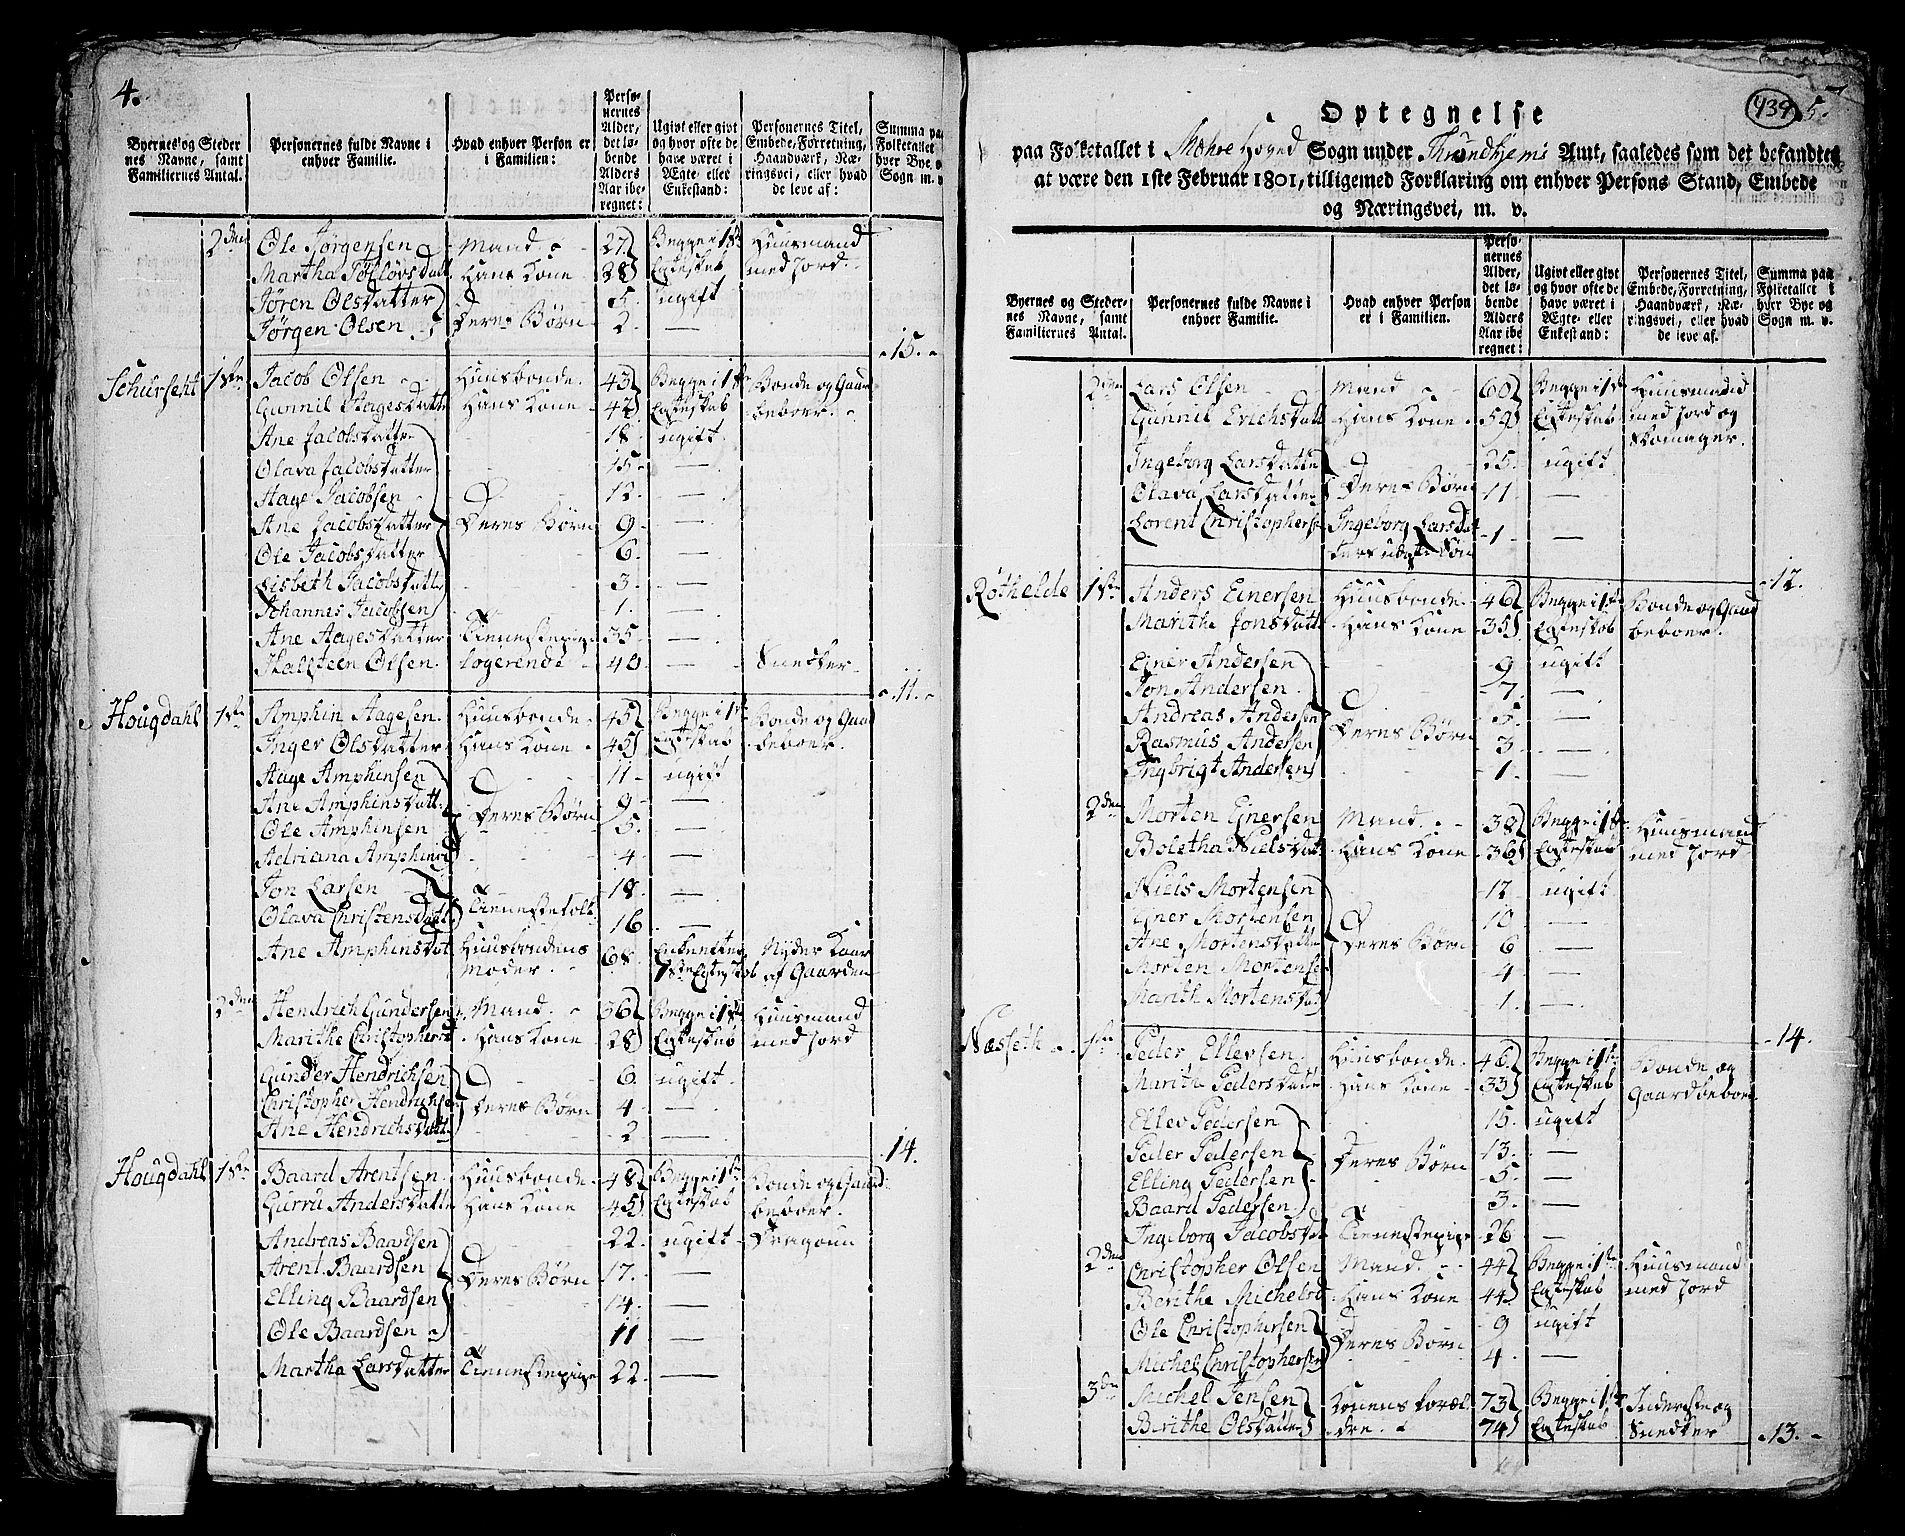 4.
Byernes og Steder
nes Navne, samt
Familiernes Antal.
Personernes fulde Navne i
enhver Familie.
Hvad enhver Person er
i Familien:
Perso-
nernes
Alder,
det lø-
bende
Alders
Aar ibe-
regnet:
Ugivt eller givt
og hvor ofte de
have været i
Ægte- eller
Enkestand:
Personernes Titel,
Embede, Forretning,
Haandværk, Næ-
ringsvei, eller hvad
de leve af:
Summa paa
Folketallet
hver Bye o
Sogn m. v.
2den Ole Jørgensen Mand 27 Begge i 1ste Huusmand
Martha Hans Kone 28 Egteskab med Jord.
Jøren Olsdatter 5 ugift
Jørgen Olsen Deres Børn 2. —
15.
Schurseht 1ste Jacob Olsen Huusbonde. 43 Begge i 1ste Bonde og Gaard
Gunnil Aagesdatt Hans Kone 42 Egteskab beboer.
Ane Jacobsdatter 18 ugift.
Olava Jacobsdatter 15 —
Aage Jacobsen 12 —
Ane Jacobsdatter Deres Børn 9 —
Ole Jacobsdatter 6. —
Lisbeth Jacobsdatte 3. —
Johannes Jacobsen 1. —
Ane Aagesdatter Tienestepige 35 —
Hallsteen Olsen. logerende 40 — Snecker
11.
Hougdahl 1ste Amphin Aagesen. Huusbonde 45 Begge i 1ste Bonde og Gaard
Inger Olsdatter Hans Kone 45 Egteskab beboer.
Aage Amphinsen 11 ugift
Ane Amphinsdatt. Deres Børn 9 —
Ole Amphinsen 5. —
Adriana Amphinsd 4 —
Jon Larsen 18. —
Olava Christensdatt Tienestefolk 16 —
Ane Amphinsdat Huusbondens 68. Enke efter Nyder Kaar
Moder. 1ste Egteskab af Gaarden
2den Hendrich Gundersen Mand. 36 Begge i 1ste Huusmand
Marithe Christophersd Hans Kone 28 Egteskab med Jord
Gunder Hendrichsen 6. ugift.
Christopher Hendrichsen Deres Børn 4 —
Ane Hendrichsdatt 2 —
14.
Hougdahl 1ste Baard Arentsen. Huusbonde 48 Begge i 1ste Bonde og Gaard
Gurru Andersdatte Hans Kone 45 Egteskab beboer.
Andreas Baardsen 22. ugift Dragoun
Arent Baardsen Deres Børn 17. —
Elling Baardsen 14. —
Ole Baardsen 11 —
Martha Larsdatter Tienestepige 22. —
439 5.
Optegnelse
paa Folketallet i Mohre Hoved Sogn under Thrundhjems Amt, saaledes som det befandtes
at være den 1ste Februar 1801, tilligemed Forklaring om enhver Persons Stand, Embede
og Næringsvei, m. v.
Byernes og Steder-
nes Navne, samt
Familiernes Antal.
Personernes fulde Navne i
enhver Familie.
Hvad enhver Person
er i Familien.
Perso-
nernes
Alder,
det lø-
bende
Alders
Aar ibe
regnet:
Ugivt eller givt
og hvor ofte de
have været i
Ægte- eller
Enkestand:
Personernes Titel,
Embede, Forretning,
Haandværk, Næ-
ringsvei, eller hvad
de leve af.
Summa paa
Folketallet i
hver Bye og
Sogn m. v.
2den Lars Olsen Mand 60 Begge i 1ste Huusmand
Gunnil Erichsdatt Hans Kone 59 Egteskab med Jord og
Skomager.
Ingeborg Larsdatte 25. ugift
Olava Larsdatter Deres Børn 11 —
Lorent Christopherse Ingeborg Larsdat 1 —
ters uægte Søn
12.
Røthelde 1ste Anders Einersen Huusbonde. 46 Begge i 1ste Bonde og Gaard
Marithe Jonsdatt Hans Kone 35 Egteskab beboer.
Ejner Andersen 9 ugift
Jon Andersen 7. —
Andreas Andersen Deres Børn 5. —
Rasmus Andersen 3 —
Ingbrigt Andersen 1. —
2den Morten Ejnersen Mand. 38 Begge i 1ste Huusmand
Boletha Nielsdatt Hans Kone 36 Egteskab med Jord
Niels Mortensen 12 ugift
Ejner Mortensen 10 —
Ane Mortensdatter Deres Børn 6 —
Morten Mortense 4 —
Marith Mortensdat 1. —
14.
Næsseth 1ste Peder Ellevsen. Huusbonde. 46 Begge i 1ste Bonde og
Marith Pedersdatte Hans Kone 33 Egteskab Gaardbeboer
Ellev Pedersen 15. ugift
Peder Pedersen Deres Børn 13. —
Elling Pedersen 5. —
Baard Pedersen 3. —
Ingeborg Jacobsdat Tienestepige 26 —
2den Christopher Olsen Mand. 44 Begge i 1ste Huusmand
Berithe Michelsd Hans Kone 44 Egteskab med Jord
Ole Christophersen 9 ugift
Michel Christophersen Deres Børn 4. —
3die Michel Jensen Konens Foræl 73 Begge i 1ste Inderste og
Birithe Olsdatter dre. 74 Egteskab Snedker
13.